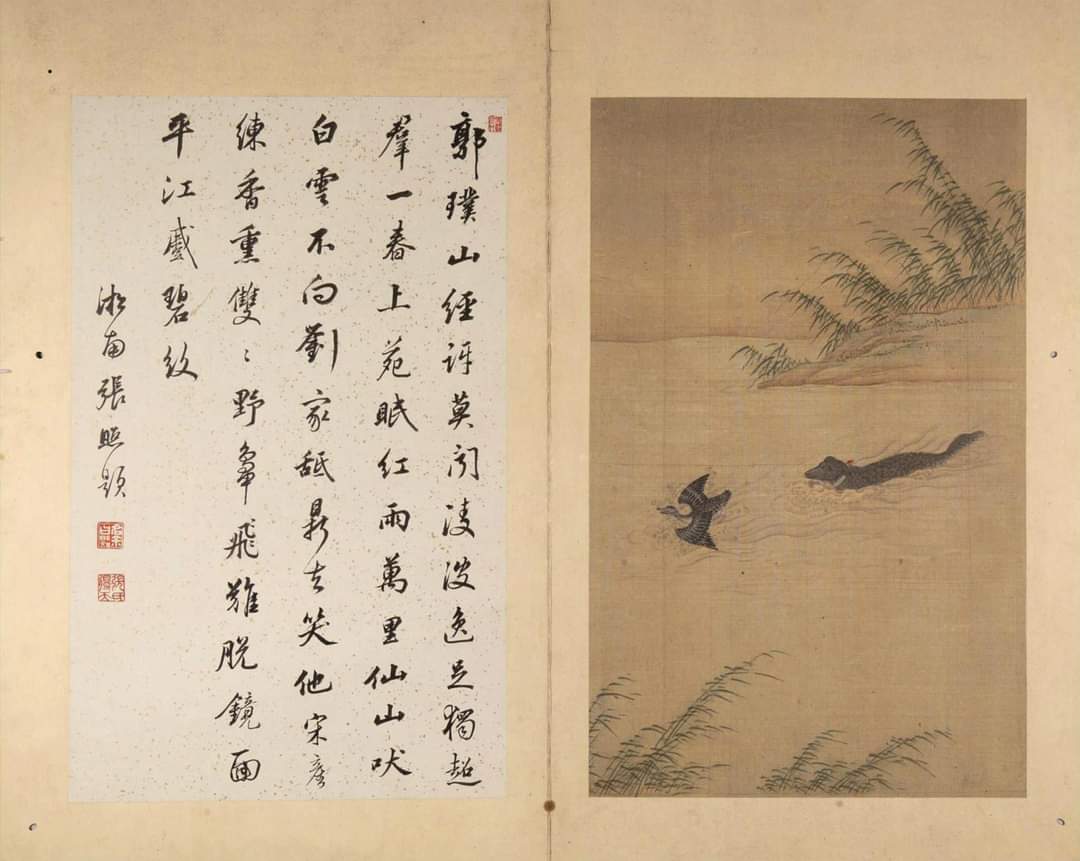 郭璞山經訝莫聞凌波逸足獨超
羣一春上苑眠紅雨萬里仙山吠
白雲不向劉家舐鼎去笑他宋
練香熏雙〻野鳧飛難脫鏡面
平江蹙碧紋
南張照題